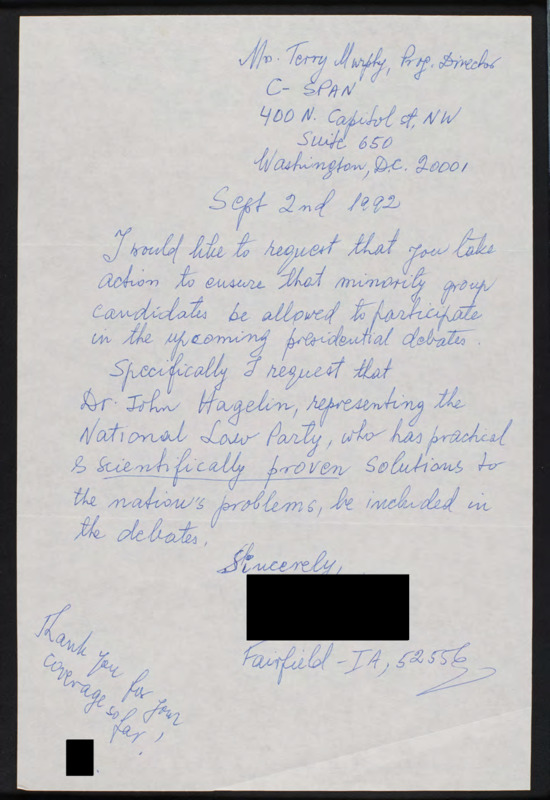 Mr. Terry Murphy, Prog. Director
C-SPAN
400 N. Capitol st, NW
Suite 650
Washington, D.C. 20001
Sept 2nd 1992
I would like to request that you take
action to ensure that minority group
candidates be allowed to participate
in the upcoming presidential debates.
Specifically I request that
Dr. John Hagelin, representing the
National Law Party, who has practical
& scientifically proven solutions to
the nation's problems, be included in
the debates.
Sincerely,
Fairfield - IA, 52556
Thank you for your
coverage so far!